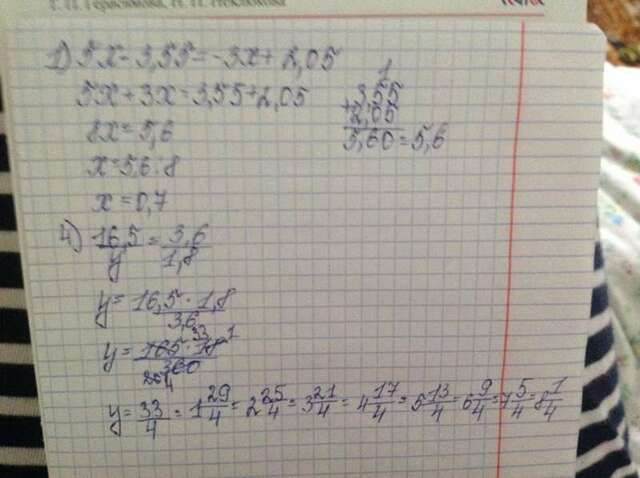 Г. П. Герасимова, Н. П. Неклюкова
1) 5x - 3,55 = -3x + 2,05
5x + 3x = 3,55 + 2,05
8x = 5,6
x = 5,6 : 8
x = 0,7
1
3,55
+ 2,05
5,60 = 5,6
4) 16,5/y = 3,6/1,8
y = 16,5 · 1,8/3,6
33 1
y = 165 · 18/360
20 4
y = 33/4 = 1 29/4 = 2 25/4 = 3 21/4 = 4 17/4 = 5 13/4 = 6 9/4 = 7 5/4 = 8 1/4